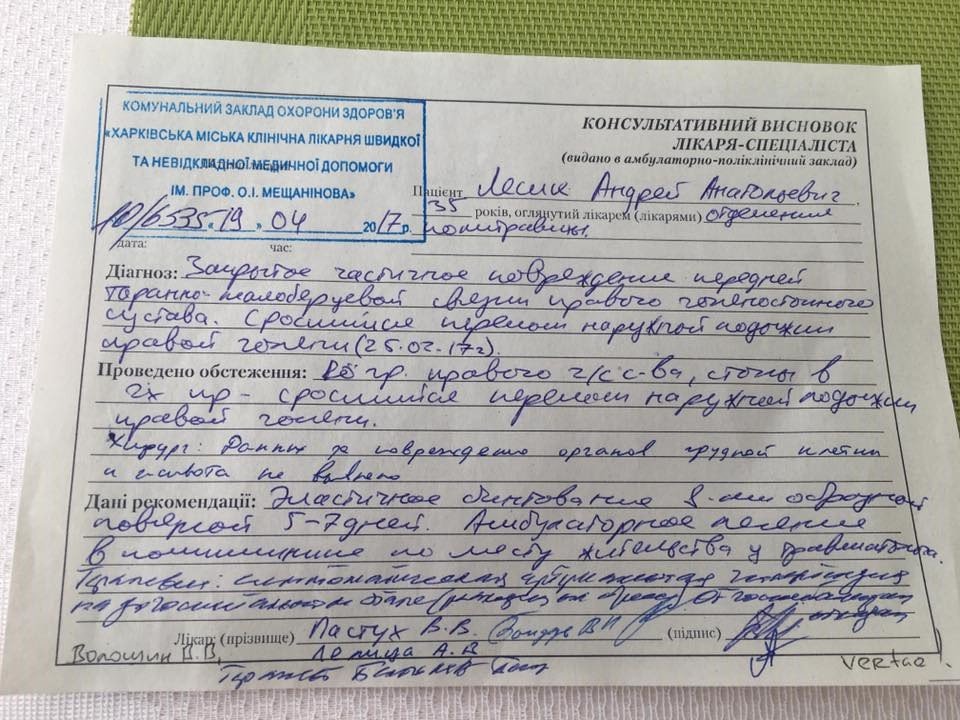 КОМУНАЛЬНИЙ ЗАКЛАД ОХОРОНИ ЗДОРОВ'Я
«ХАРКІВСЬКА МІСЬКА КЛІНІЧНА ЛІКАРНЯ ШВИДКОЇ
ТА НЕВІДКЛАДНОЇ МЕДИЧНОЇ ДОПОМОГИ
ІМ. ПРОФ. О.І. МЕЩАНІНОВА»
10/6535 «19» 04 2017 р.
дата: час:
КОНСУЛЬТАТИВНИЙ ВИСНОВОК
ЛІКАРЯ-СПЕЦІАЛІСТА
(видано в амбулаторно-поліклінічний заклад)
Пацієнт Андрей Анатольевич,
35 років, оглянутий лікарем (лікарями) отделения
политравмы.
Діагноз: Закрытое частичное повреждение передней
таранно-малоберцовой связки правого голеностопного
сустава. Сросшийся перелом наружной лодыжки
правой голени (25.02.17г).
Проведено обстеження: гр. правого г/с с-ва, стопы в
2х пр - сросшийся перелом наружной лодыжки
правой голени.
Хирург: Данных за повреждение органов грудной клетки
и живота не выявлено
Дані рекомендації: Эластичное бинтование 8-ми образной
повязкой 5-7 дней. Амбулаторное лечение
в поликлинике по месту жительства у травматолога.
Терапевт: симптоматическая артериальная гипертензия
на от госпитализации
Лікар: (прізвище) Пастух В.В. (підпис)
Волошин В.В,
Терапевт
vertae!